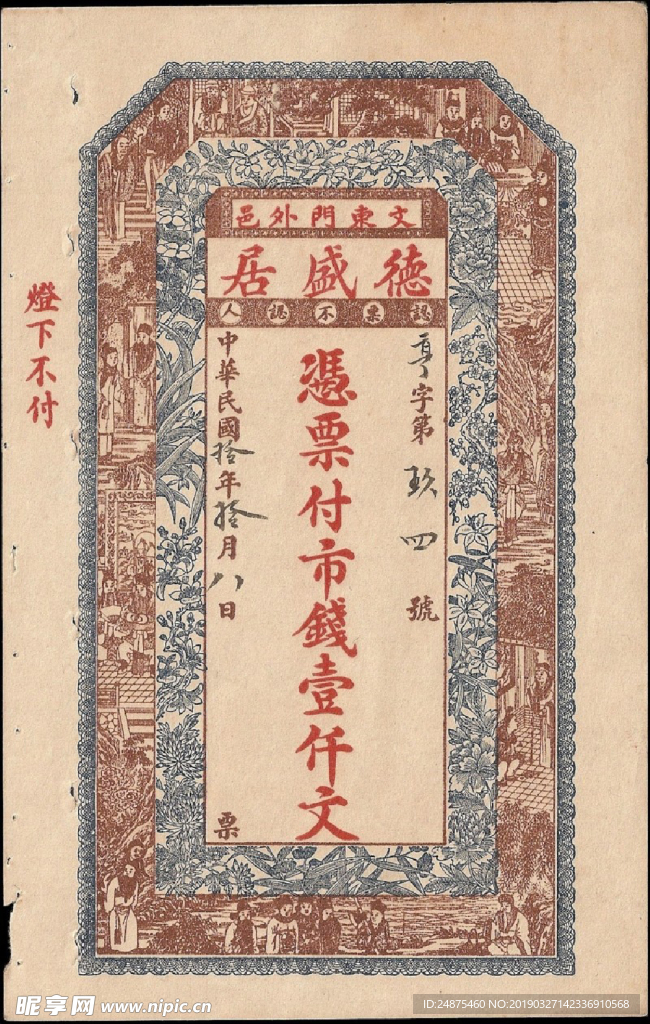 文東門外邑
德盛居
認票不認人
字第玖四號
憑票付市錢壹仟文
中華民國拾年拾月八日票
燈下不付
昵享网 www.nipic.cn
ID:24875460 NO:20190327142336910568